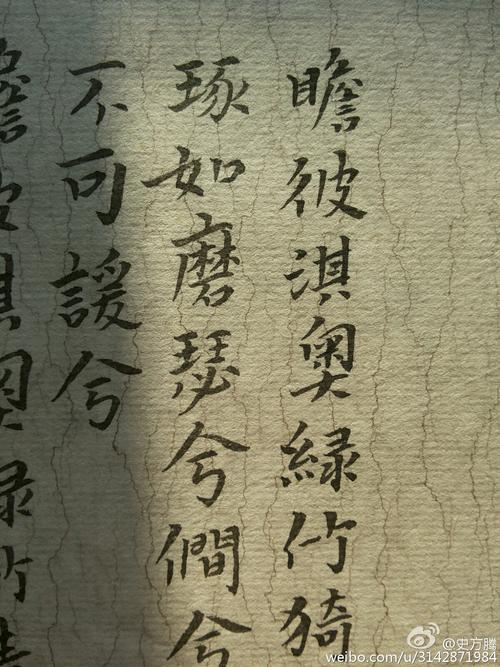 瞻彼淇奥緑竹猗
琢如磨瑟兮僩兮
不可諼兮
瞻彼淇奥緑竹
@史方騰
weibo.com/u/3142871984